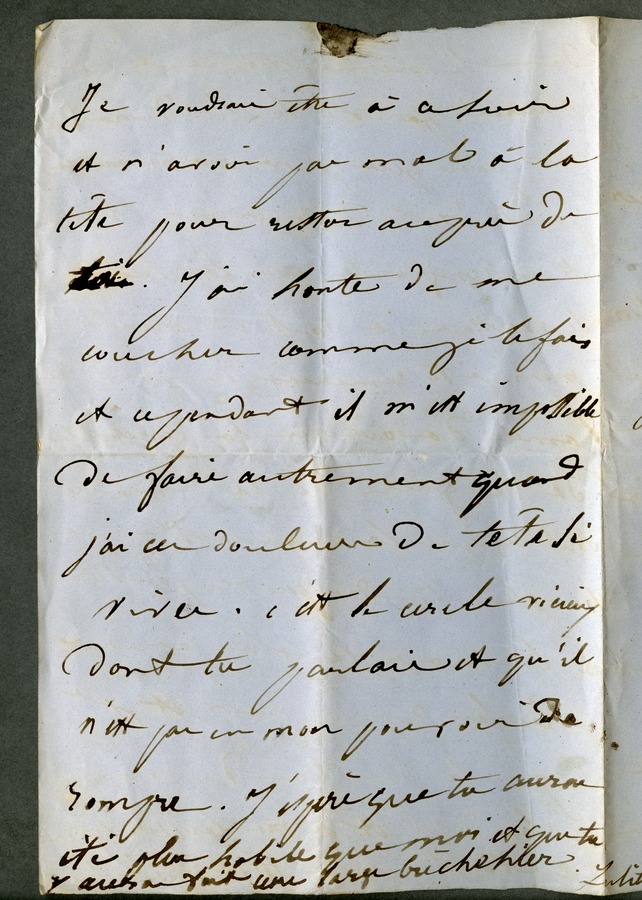 Je voudrais être à ce soir
et n'avoir pas mal à la
tête pour rester auprès de
toi. J'ai honte de me
coucher comme je le fais
et cependant il m'est impossible
de faire autrement quand
j'ai ces douleurs de tête si
vives. c'est le cercle vicieux
dont tu parlais et qu'il
n'est pas en mon pouvoir de
rompre. J'espère que tu auras
été plus habile que moi et que tu
y auras fait une large
Juliette